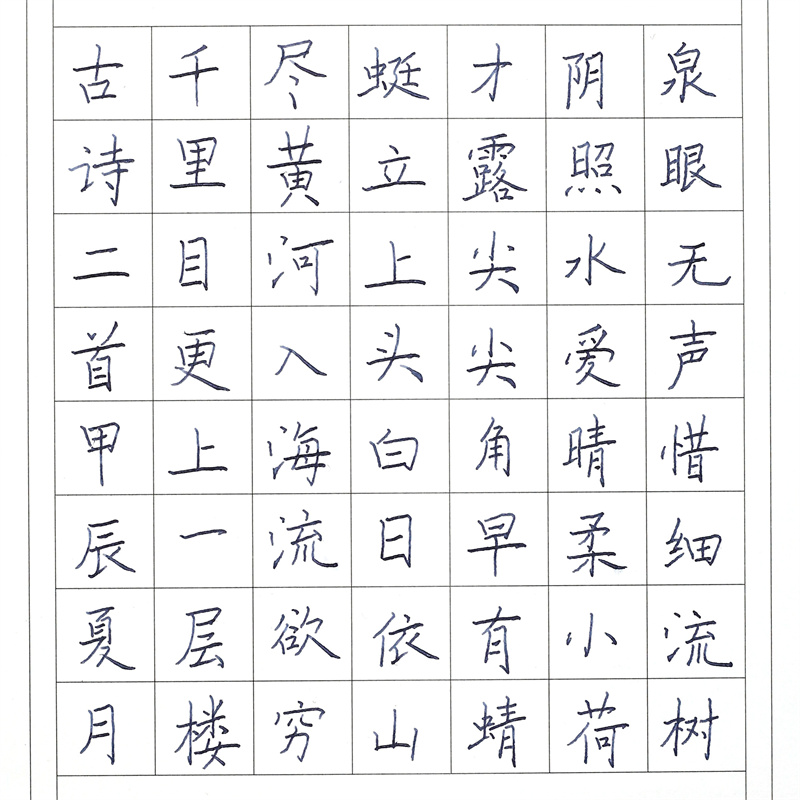 泉眼无声惜细流树
阴照水爱晴柔小荷
才露尖尖角早有蜻
蜓立上头白日依山
尽黄河入海流欲穷
千里目更上一层楼
古诗二首甲辰夏月